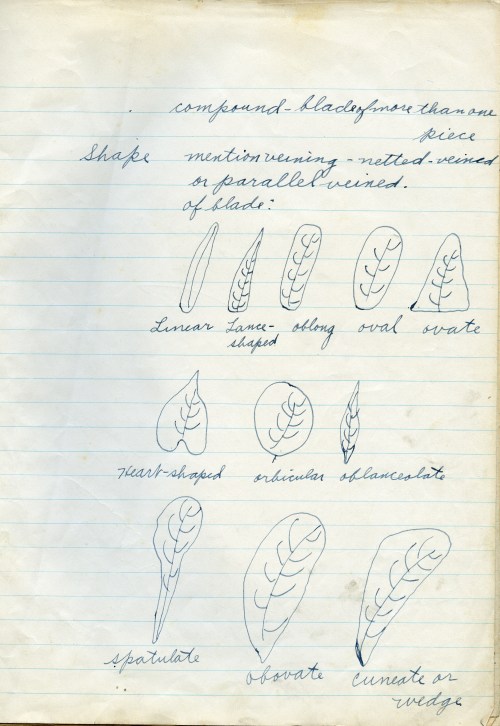 compound - blade of more than one
piece
Shape mention veining - netted-veined
or parallel veined.
of blade:
Linear Lance- oblong oval ovate
shaped
Heart-shaped orbicular oblanceolate
spatulate obovate cuneate or
wedge